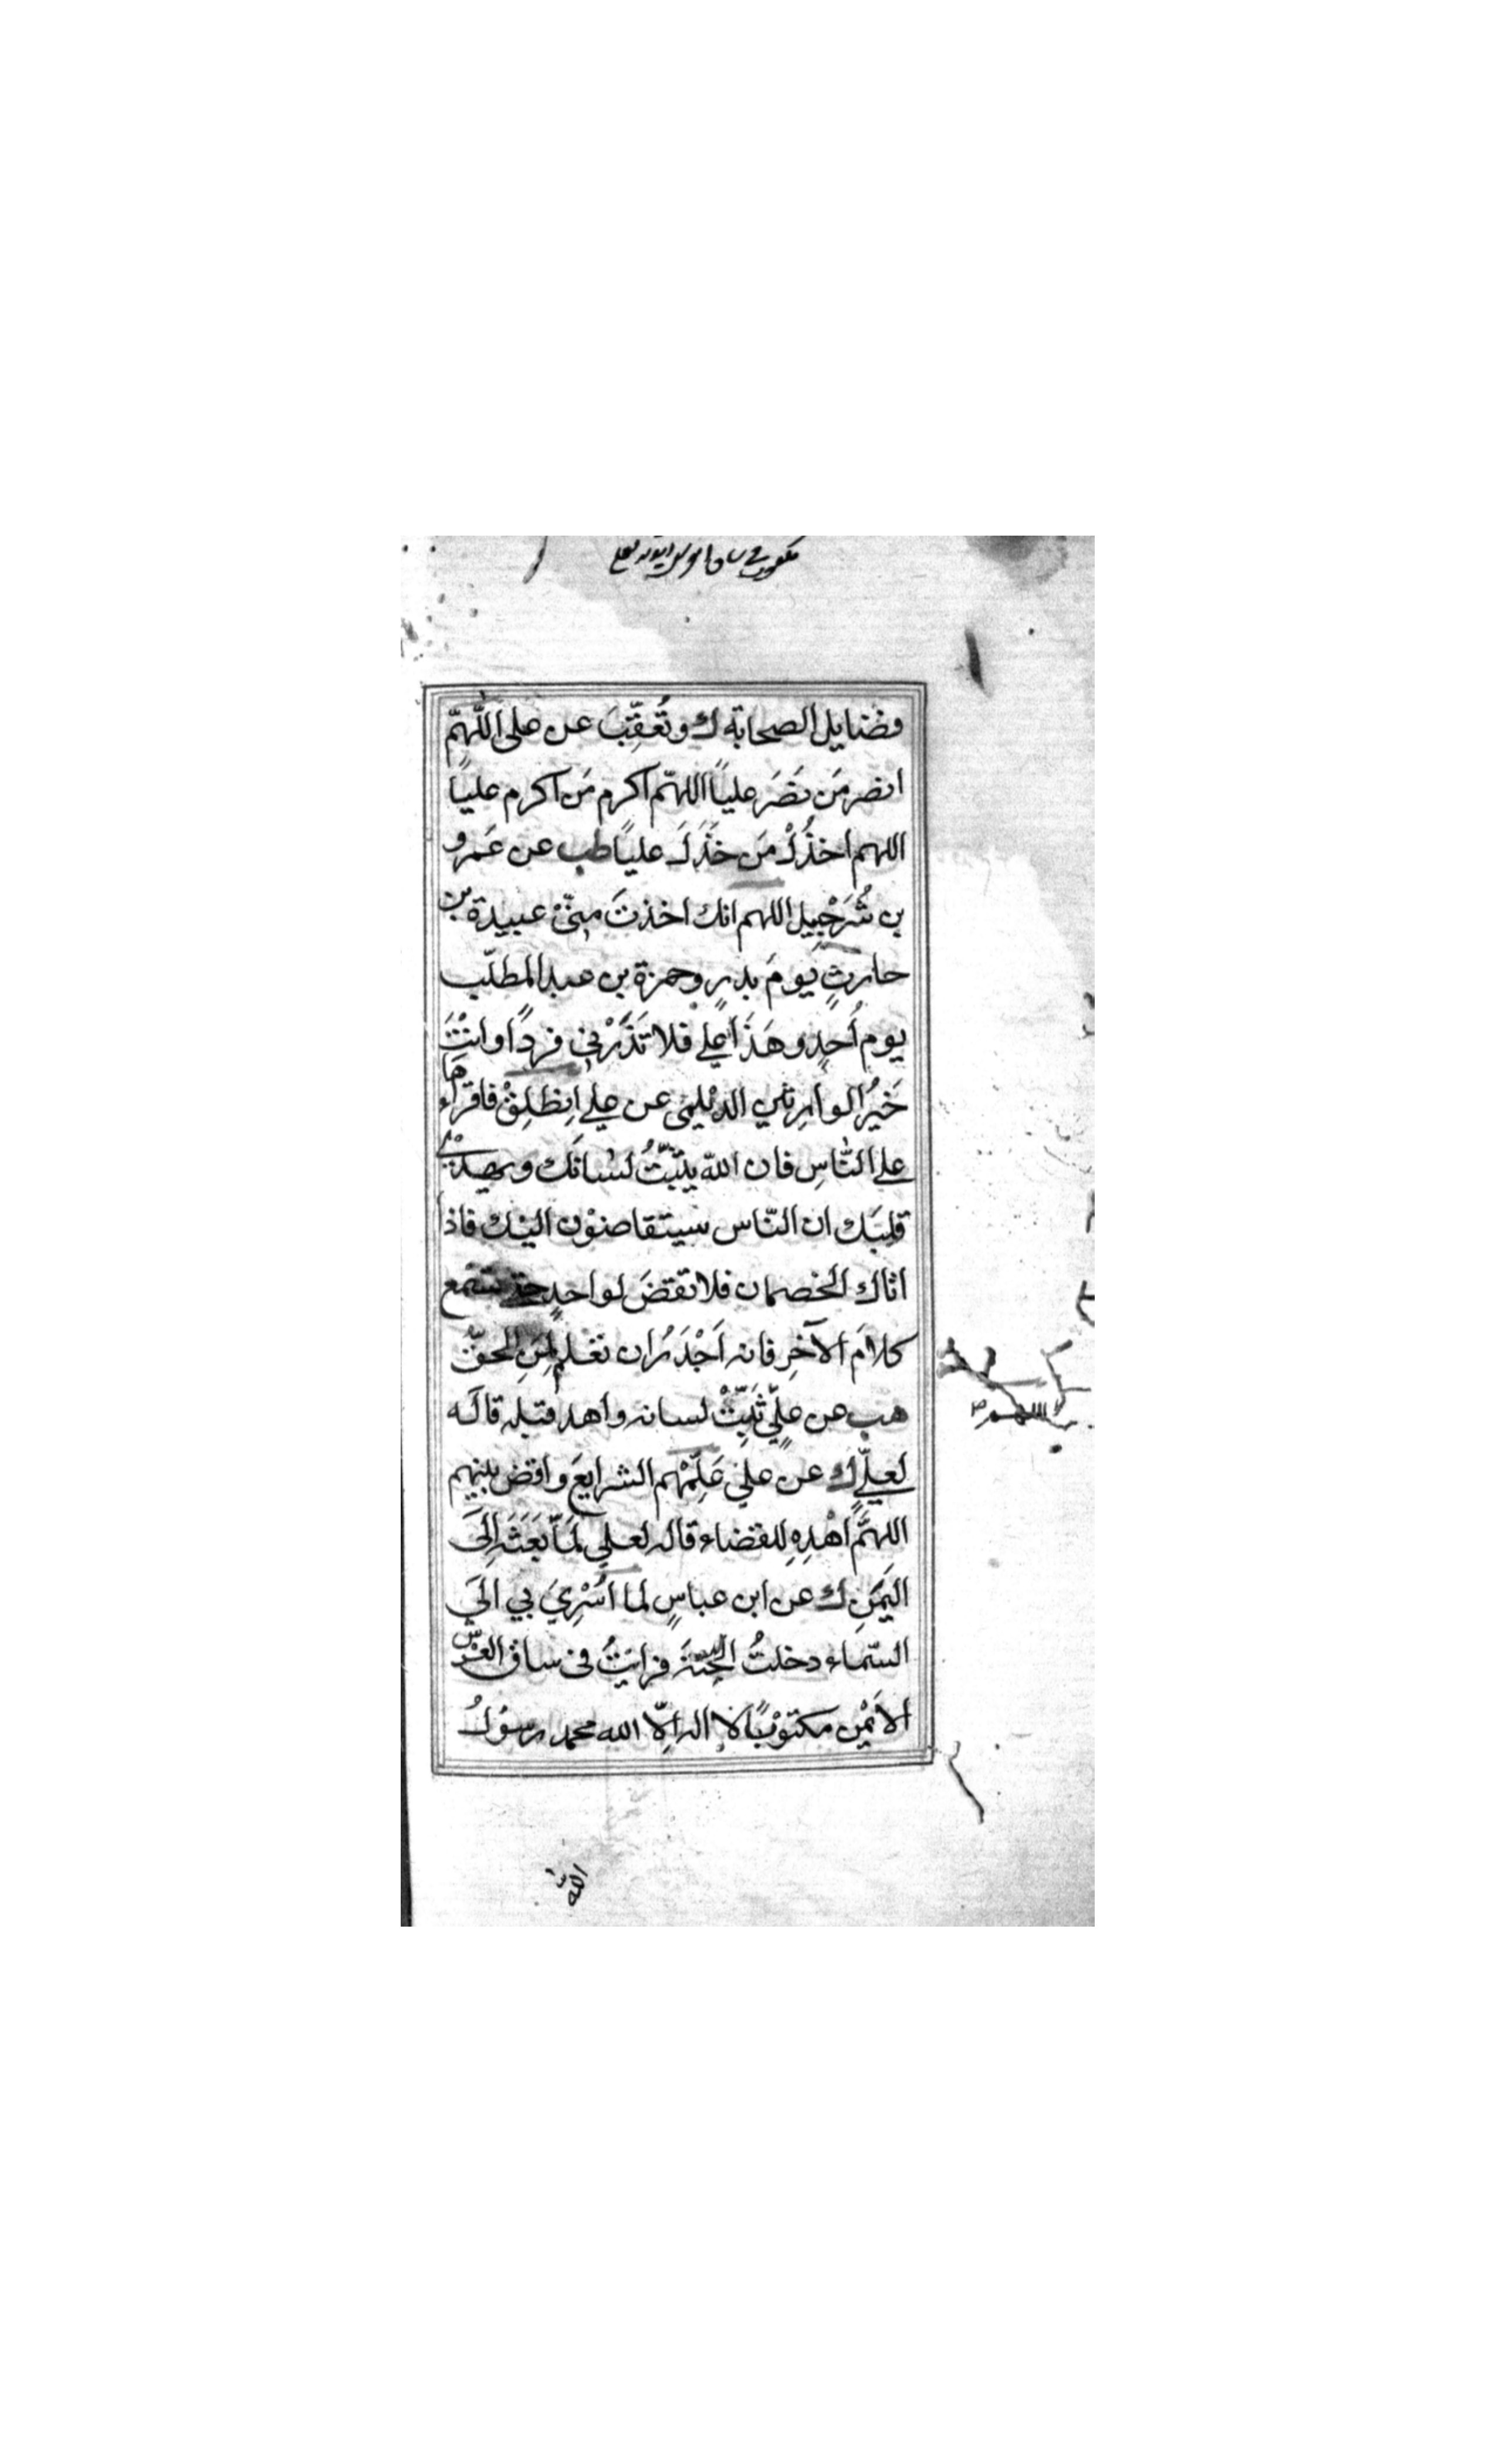 وفضايل الصحابة ك وتُعُقِّبَ عن على اللّهمّ
انصر مَن نَصَرَ علياً اللهمّ اكرم مَن اكرم علياً
اللهم اخذُلْ مَن خَذَلَ علياً طب عن عَمرو
بن شُرَحْبِيل اللهم انك اخذتَ مِنّىْ عبيدة بن
حارثٍ يومَ بدرٍ وحمزة بن عبد المطلّب
يوم اُحدٍ وهَذَا علي فلا تَذَرْنِي فرداً وانْتَ
خَيرُ الوارثين الديْلمى عن علي اِنطلِقْ فاقراءها
علي النّاسِ فان اللّه يثبّتُ لسانَك ويهدىْ
قلبَك ان النّاس سيتقاضوْن اليْك فاذا
اتاك الخصمان فلا تقضَ لواحدٍ حتى تسْمع
كلامَ الآخرِ فانه اَجْدَرُ ان تعْلم لمَنِ الحقّ
هب عن عليٍّ ثَبِّتْ لسانه واهد قلبه قاله
لعليٍّ ك عن علي عَلِّمْهم الشرايعَ واقض بينهم
اللهمَّ اهْدِهِ للقضاء قاله لعلي لمَّا بَعَثَه اِلَى
اليَمَنِ ك عن ابن عباسٍ لما اُسْرِيَ بي الَي
السّماء دخلتُ الجنّةَ فرايتُ فى ساق العرش
الاَيْمن مكتوْباً لا اله اِلّا الله محمد رسوْلُ
اللهّ